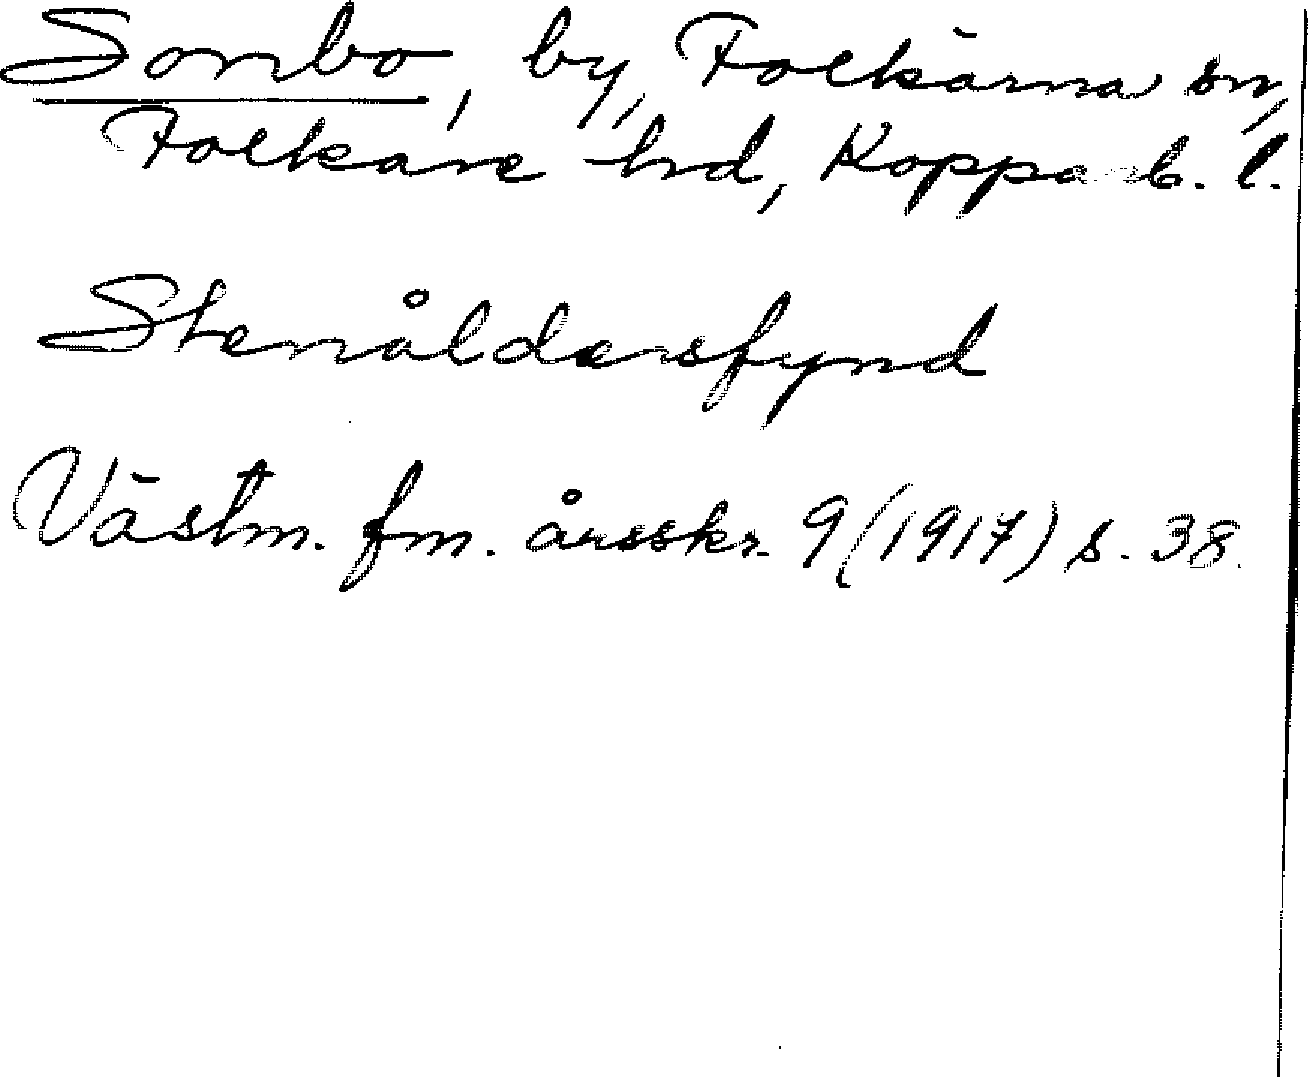 Sonnbo, by, Folkärna sn,
Folkare hd, Kopparb. l.
Stenåldersfynd
Västm. fm. årsskr. 9 (1917) s. 38.